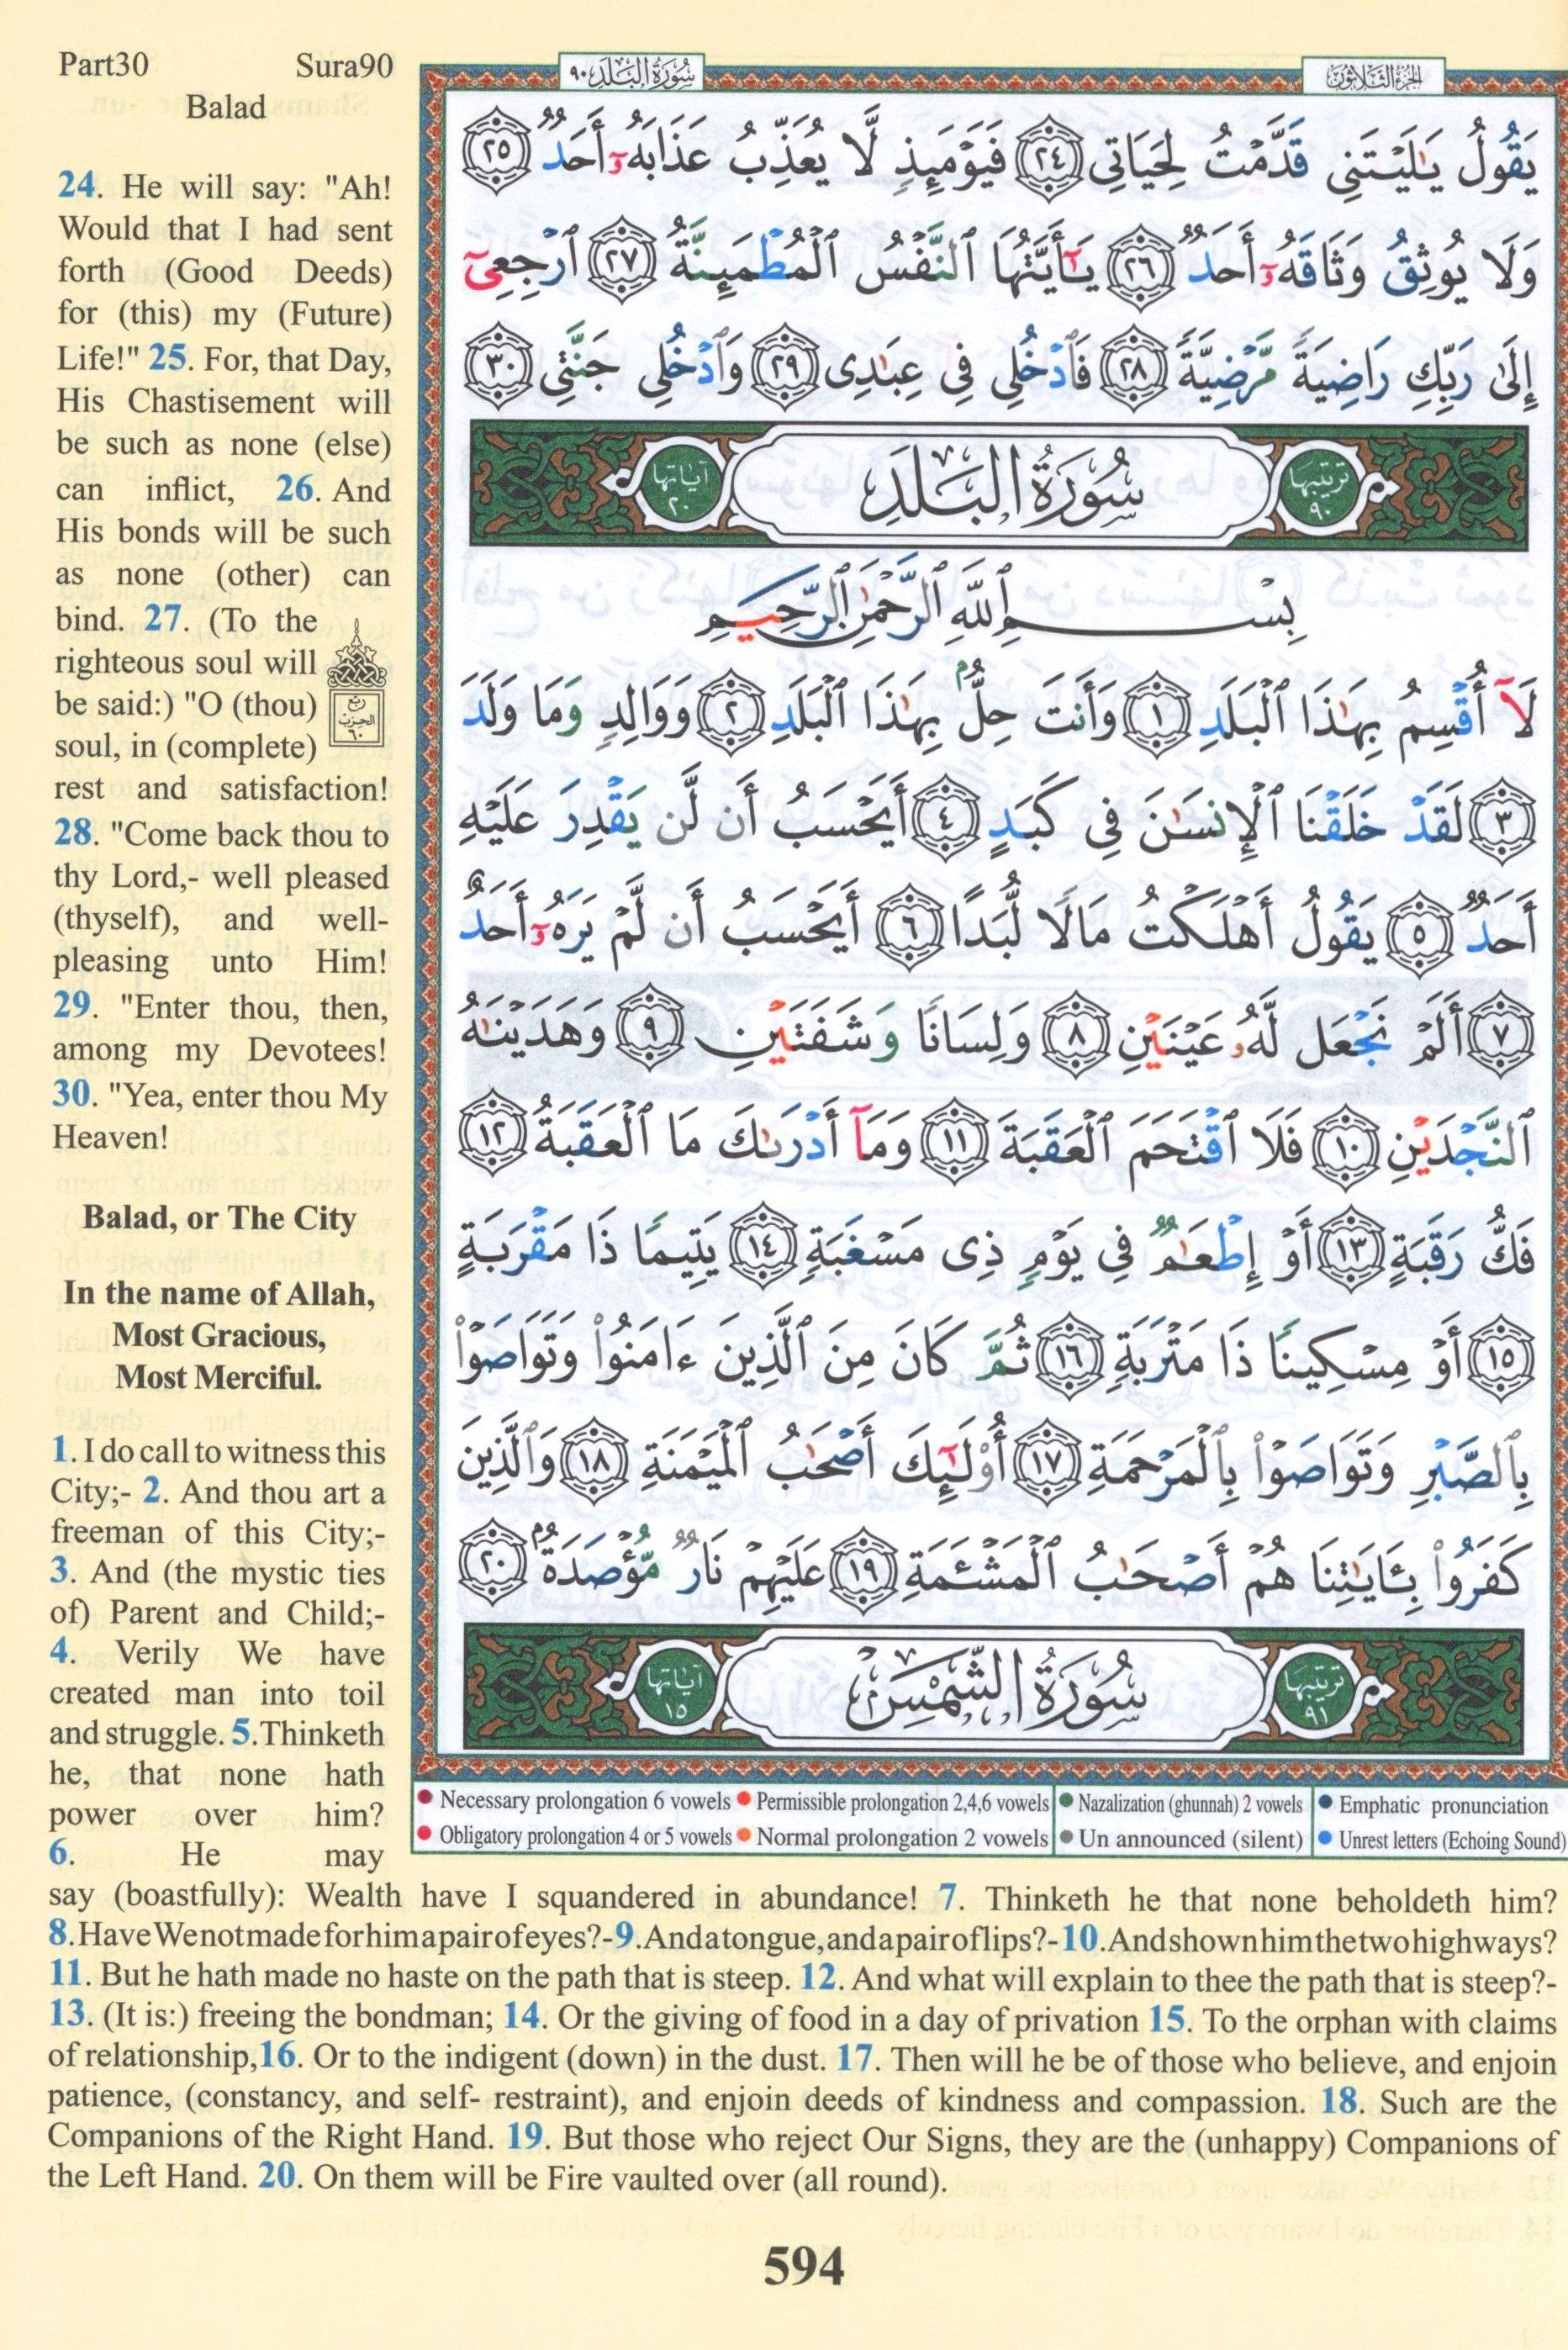 Part30 Sura90
Balad
24. He will say: "Ah!
Would that I had sent
forth (Good Deeds)
for (this) my (Future)
Life!" 25. For, that Day,
His Chastisement will
be such as none (else)
can inflict, 26. And
His bonds will be such
as none (other) can
bind. 27. (To the
righteous soul will
be said:) "O (thou)
soul, in (complete)
rest and satisfaction!
28. "Come back thou to
thy Lord,- well pleased
(thyself), and well-
pleasing unto Him!
29. "Enter thou, then,
among my Devotees!
30. "Yea, enter thou My
Heaven!
Balad, or The City
In the name of Allah,
Most Gracious,
Most Merciful.
1. I do call to witness this
City;- 2. And thou art a
freeman of this City;-
3. And (the mystic ties
of) Parent and Child;-
4. Verily We have
created man into toil
and struggle. 5.Thinketh
he, that none hath
power over him?
6. He may
ربع
الحزب
٦٠
الجزء الثلاثون
سُورَةُ البَلَدِ ٩٠
يَقُولُ يَٰلَيْتَنِى قَدَّمْتُ لِحَيَاتِى ٢٤ فَيَوْمَئِذٍ لَّا يُعَذِّبُ عَذَابَهُۥٓ أَحَدٌ ٢٥
وَلَا يُوثِقُ وَثَاقَهُۥٓ أَحَدٌ ٢٦ يَٰٓأَيَّتُهَا ٱلنَّفْسُ ٱلْمُطْمَئِنَّةُ ٢٧ ٱرْجِعِىٓ
إِلَىٰ رَبِّكِ رَاضِيَةً مَّرْضِيَّةً ٢٨ فَٱدْخُلِى فِى عِبَٰدِى ٢٩ وَٱدْخُلِى جَنَّتِى ٣٠
ترتيبها ٩٠ سُورَةُ البَلَدِ آياتها ٢٠
بِسْمِ ٱللَّهِ ٱلرَّحْمَٰنِ ٱلرَّحِيمِ
لَآ أُقْسِمُ بِهَٰذَا ٱلْبَلَدِ ١ وَأَنتَ حِلٌّۢ بِهَٰذَا ٱلْبَلَدِ ٢ وَوَالِدٍ وَمَا وَلَدَ
٣ لَقَدْ خَلَقْنَا ٱلْإِنسَٰنَ فِى كَبَدٍ ٤ أَيَحْسَبُ أَن لَّن يَقْدِرَ عَلَيْهِ
أَحَدٌ ٥ يَقُولُ أَهْلَكْتُ مَالًا لُّبَدًا ٦ أَيَحْسَبُ أَن لَّمْ يَرَهُۥٓ أَحَدٌ
٧ أَلَمْ نَجْعَل لَّهُۥ عَيْنَيْنِ ٨ وَلِسَانًا وَشَفَتَيْنِ ٩ وَهَدَيْنَٰهُ
ٱلنَّجْدَيْنِ ١٠ فَلَا ٱقْتَحَمَ ٱلْعَقَبَةَ ١١ وَمَآ أَدْرَىٰكَ مَا ٱلْعَقَبَةُ ١٢
فَكُّ رَقَبَةٍ ١٣ أَوْ إِطْعَٰمٌ فِى يَوْمٍ ذِى مَسْغَبَةٍ ١٤ يَتِيمًا ذَا مَقْرَبَةٍ
١٥ أَوْ مِسْكِينًا ذَا مَتْرَبَةٍ ١٦ ثُمَّ كَانَ مِنَ ٱلَّذِينَ ءَامَنُوا۟ وَتَوَاصَوْا۟
بِٱلصَّبْرِ وَتَوَاصَوْا۟ بِٱلْمَرْحَمَةِ ١٧ أُو۟لَٰٓئِكَ أَصْحَٰبُ ٱلْمَيْمَنَةِ ١٨ وَٱلَّذِينَ
كَفَرُوا۟ بِـَٔايَٰتِنَا هُمْ أَصْحَٰبُ ٱلْمَشْـَٔمَةِ ١٩ عَلَيْهِمْ نَارٌ مُّؤْصَدَةٌۢ ٢٠
ترتيبها ٩١ سُورَةُ الشَّمْسِ آياتها ١٥
Necessary prolongation 6 vowels Permissible prolongation 2,4,6 vowels Nazalization (ghunnah) 2 vowels Emphatic pronunciation
Obligatory prolongation 4 or 5 vowels Normal prolongation 2 vowels Un announced (silent) Unrest letters (Echoing Sound)
say (boastfully): Wealth have I squandered in abundance! 7. Thinketh he that none beholdeth him?
8.Have We not made for him a pair of eyes?-9.And a tongue, and a pair of lips?-10.And shown him the two highways?
11. But he hath made no haste on the path that is steep. 12. And what will explain to thee the path that is steep?-
13. (It is:) freeing the bondman; 14. Or the giving of food in a day of privation 15. To the orphan with claims
of relationship,16. Or to the indigent (down) in the dust. 17. Then will he be of those who believe, and enjoin
patience, (constancy, and self- restraint), and enjoin deeds of kindness and compassion. 18. Such are the
Companions of the Right Hand. 19. But those who reject Our Signs, they are the (unhappy) Companions of
the Left Hand. 20. On them will be Fire vaulted over (all round).
594